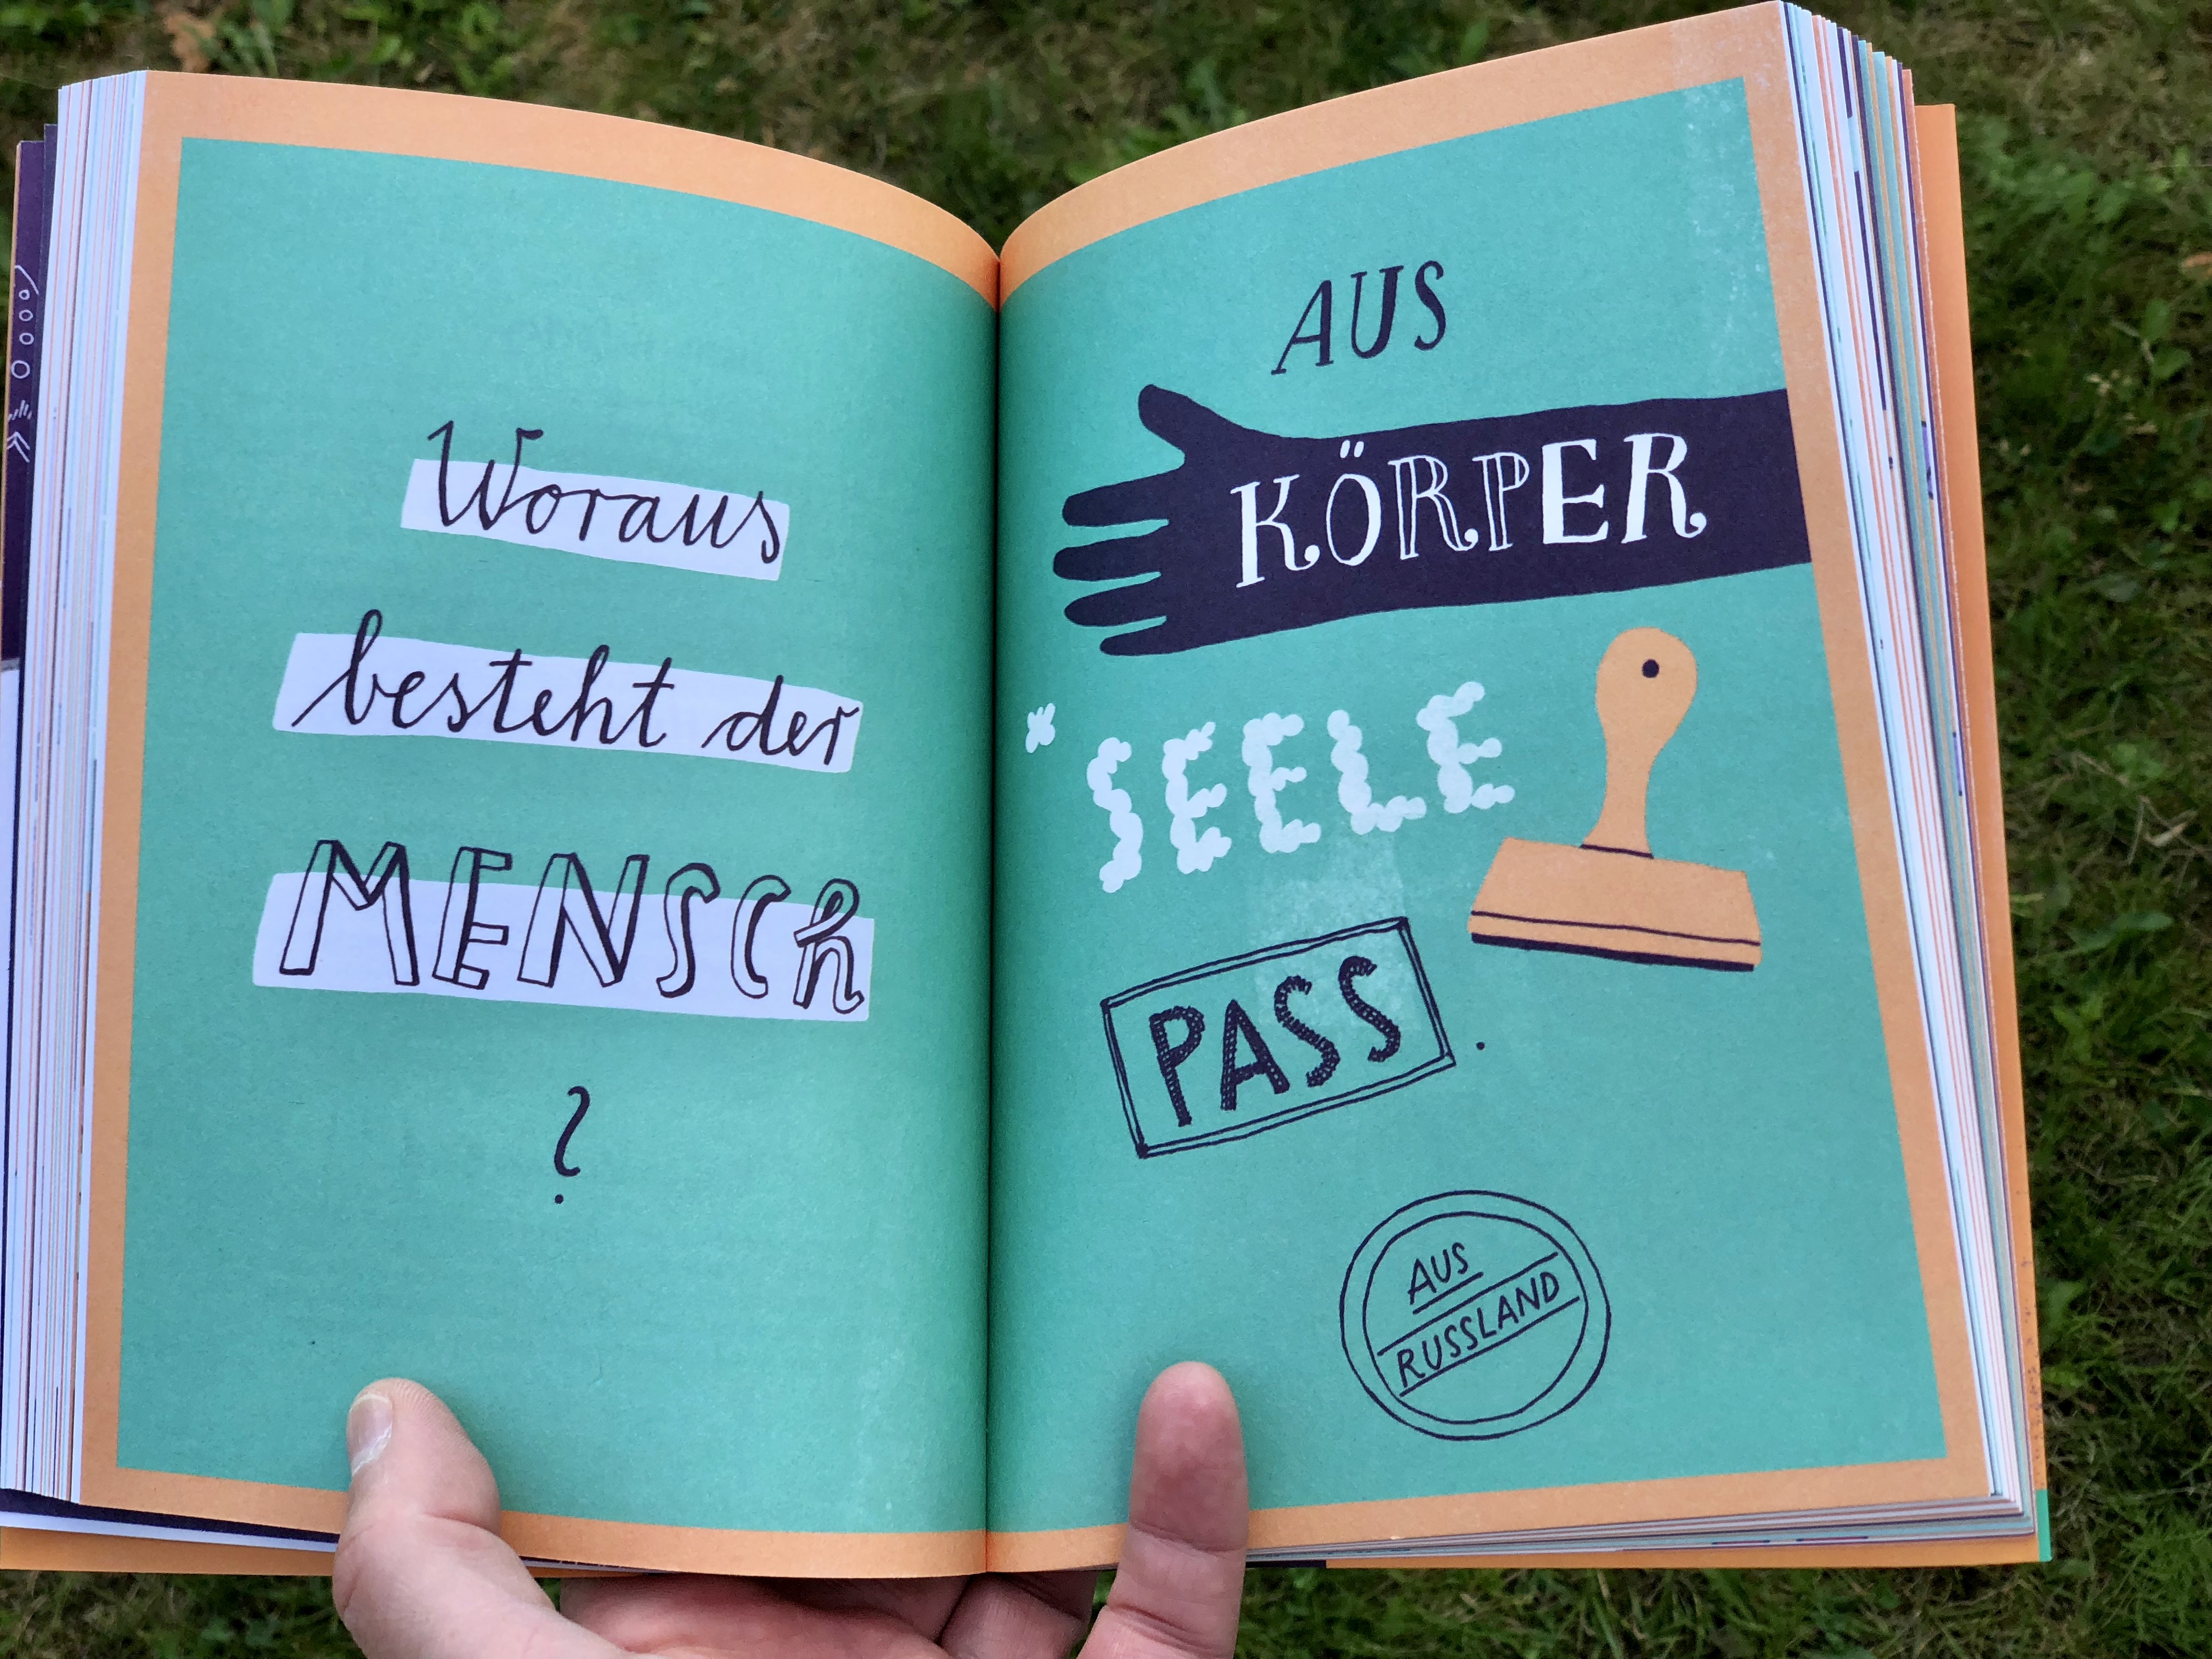 Woraus
besteht der
MENSCh
?
AUS
KÖRPER
SEELE
PASS.
AUS
RUSSLAND